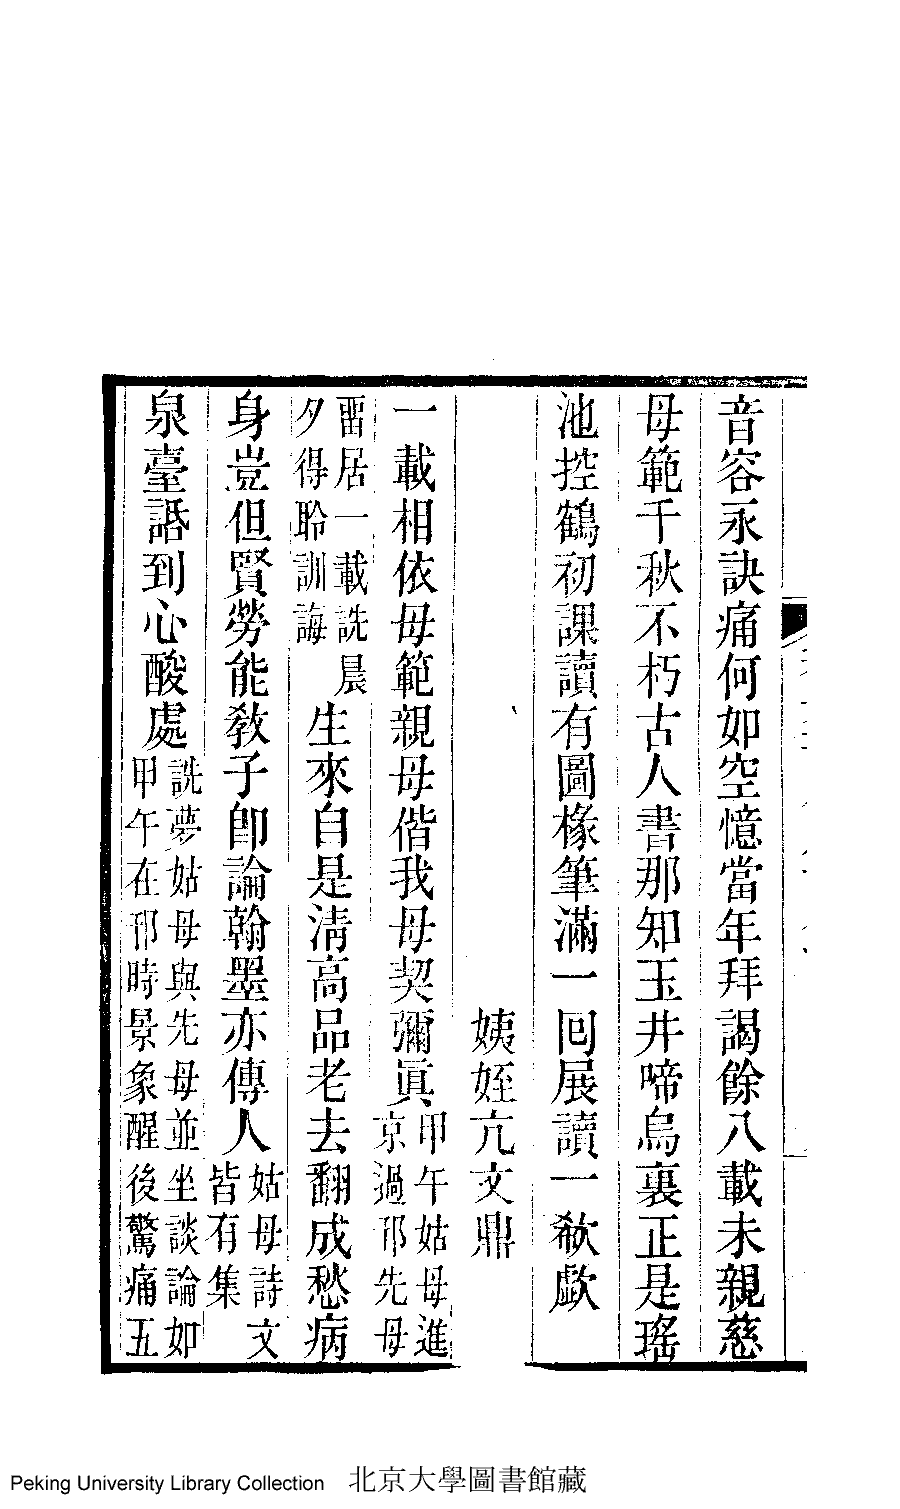 音容永訣痛何如空憶當年拜謁餘八載未親慈
母範千秋不朽古人書那知玉井啼烏裏正是瑤
池控鶴初課讀有圖椽筆滿一囘展讀一欷歔
姨姪亢文鼎
一載相依母範親母偕我母契彌眞甲午姑母進京過邗先母
畱居一載詵晨夕得聆訓誨生來自是淸高品老去翻成愁病
身豈但賢勞能敎子卽論翰墨亦傳人姑母詩文皆有集
泉臺話到心酸處詵夢姑母與先母並坐談論如甲午在邗時景象醒後驚痛五
Peking University Library Collection 北京大學圖書館藏